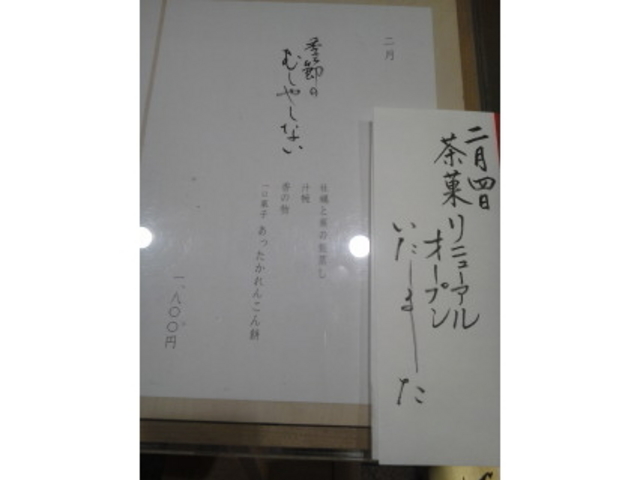 二月
季節の
むしやしない
牡蠣と菜の飯蒸し
汁椀
香の物
一口菓子 あったかれんこん餅
一、八〇〇円
二月四日
茶菓リニューアル
オープン
いたしました